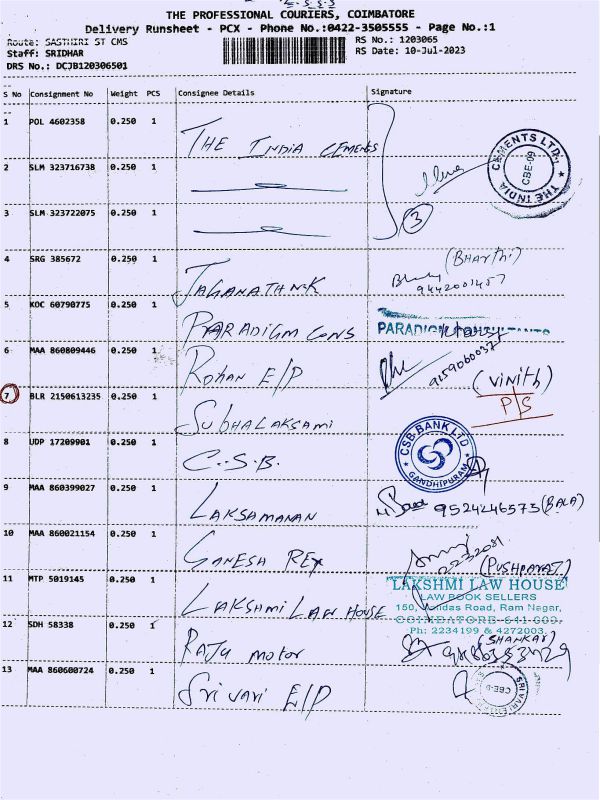 THE PROFESSIONAL COURIERS, COIMBATORE
Delivery Runsheet - PCX - Phone No.:0422-3505555 - Page No.:1
Route: SASTHIRI ST CMS
RS No.: 1203065
Staff: SRIDHAR
RS Date: 10-Jul-2023
DRS No.: DCJB120306501
S No Consignment No Weight PCS Consignee Details Signature
1 POL 4602358 0.250 1 THE INDIA CEMENTS
CEMENTS LTD. THE INDIA CBE-09
2 SLM 323716738 0.250 1
3 SLM 323722075 0.250 1
3
4 SRG 385672 0.250 1 JAGANATH N.K (BHARTHI)
9442001457
5 KOC 60790775 0.250 1 PARADIGM CONS PARADIGM CONSULTANTS
6 MAA 860809446 0.250 1 ROHAN E/P
(VINITH)
7 BLR 2150613235 0.250 1 SUBHALAKSAMI P/S
8 UDP 17209901 0.250 1 C.S.B. CSB BANK LTD GANDHIPURAM
9 MAA 860399027 0.250 1 LAKSAMANAN 9524246573 (BALA)
10 MAA 860021154 0.250 1 GANESH REX
11 MTP 5019145 0.250 1 LAKSHMI LAW HOUSE
LAKSHMI LAW HOUSE
LAW BOOK SELLERS
Road, Ram Nagar,
COIMBATORE-641 009.
Ph: 2234199 & 4272003.
12 SDH 58338 0.250 1 RAJU motor (SHANKAR)
13 MAA 860600724 0.250 1 Sri vari E/P